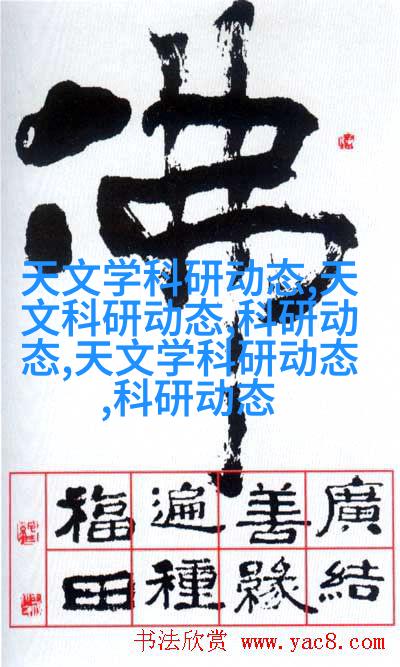 佛
天文学科研动态,天
文科研动态,科研动
态,天文学科研动态
,科研动态
廣結
善緣
遍種
福田
书法欣赏 www.yac8.com